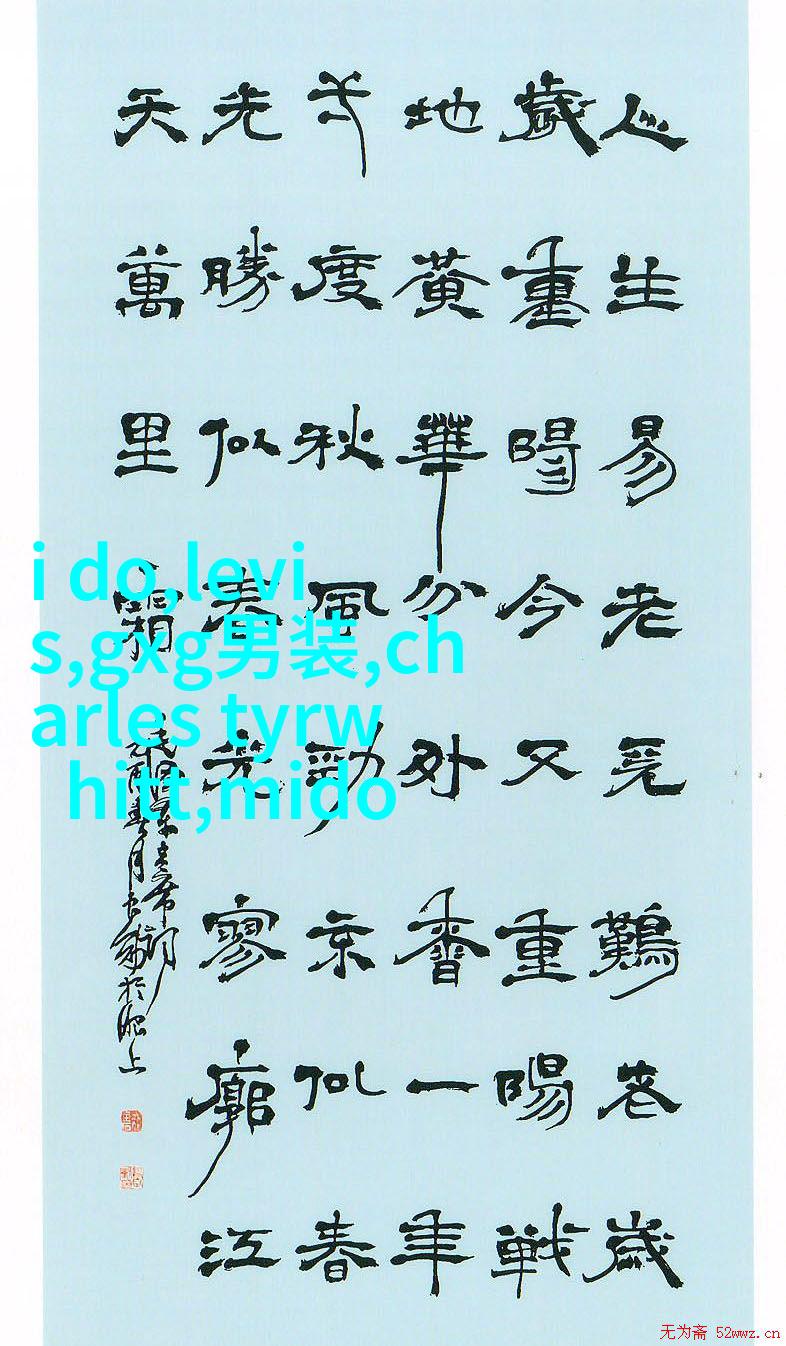 人生易老天難老歲
歲重陽今又重陽戰
地黃華分外香一年
一度秋風勁不似春
光勝似春光寥廓江
天萬里霜
i do,levi
s,gxg男装,ch
arles tyrw
hitt,mido
无为斋 52wwz.cn